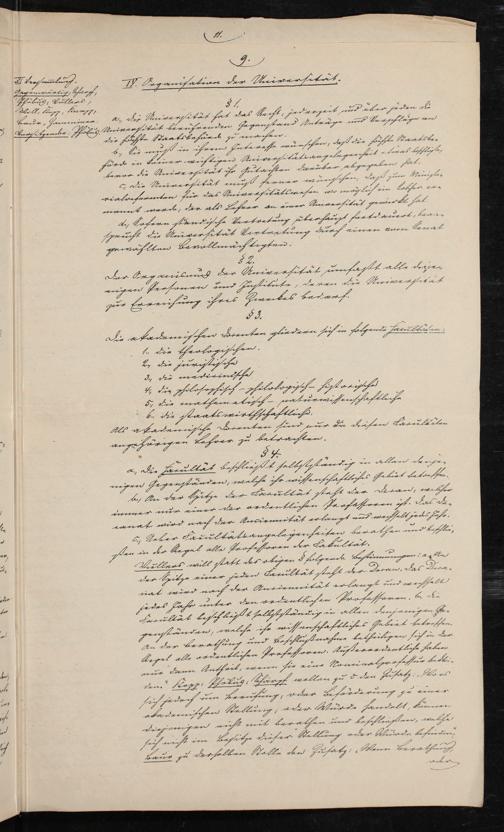 11.
9.
IV. Organisation der Universität.
§ 1.
a, die Universität hat das Recht, jederzeit und über jeden die
Universität berührenden Gegenstand Anträge und Vorschläge an
die höchste Staatsbehörde zu
b, Sie muß in ihrem Interesse wünschen, daß die höchste Staatsbe-
hörde in keiner wichtigen Universitätsangelegenheit
bevor die Universität ihr Gutachten darüber abgegeben hat.
c, die Universität muß ferner wünschen, daß zum Ministe-
rialreferenten für das Universitätswesen wo möglich ein Lehrer er-
nannt werde, der als Lehrer an einer Universität gewirkt hat.
d, Sofern ständische Vertretung überhaupt fortdauert, bean-
sprucht die Universität Vertretung durch einen vom Senat
gewählten Bevollmächtigten.
§ 2.
Der Organismus der Universität umfaßt alle dieje-
nigen Personen und Institute, deren die Universität
zur Erreichung ihres Zweckes bedarf.
§ 3.
Die akademischen Docenten gliedern sich in folgende Facultäten:
1. die theologischen.
2, die juristische
3, die medicinische
4, die philosophisch-philologisch-historische
5, die mathematisch-naturwissenschaftliche
6. die staatswirthschaftliche.
Als akademische Docenten sind nur die diesen Facultäten
angehörigen Lehrer zu betrachten.
§ 4.
a, Die Facultät beschließt selbstständig in allen denje-
nigen Gegenständen, welche ihr wissenschaftliches Gebiet betreffen.
b, An der Spitze der Facultät steht der Decan, welcher
immer nur einer der ordentlichen Professoren ist. Das De-
canat wird nach der Anciennität erlangt und wechselt jedes Jahr.
c, Ueber Facultätsangelegenheiten berathen und beschlie-
ßen in der Regel alle Professoren der Fakultät.
Vullers will statt des obigen § folgende Bestimmungen: a, An
der Spitze einer jeden Facultät steht der Decan, das Deca-
nat wird nach der Anciennität erlangt und wechselt
jedes Jahr unter den ordentlichen Professoren. b, die
Facultät beschließt selbstständig in allen denjenigen Ge-
genständen, welche ihr wissenschaftliches Gebiet betreffen.
An der Berathung und Beschlußnahme betheiligen sich in der
Regel alle ordentlichen Professoren. Außerordentliche haben
nur dann Antheil, wenn sie eine Nominalprofessur beklei-
den." Kopp, Phöbus, Schopf wollen zu c den Zusatz: "Wo es
sich jedoch um Berufung, oder Beförderung zu einer
akademischen Stellung, oder Würde handelt, können
diejenigen nicht mit berathen und beschließen, welche
sich nicht im Besitze dieser Stellung oder Würde befinden.
Baur zu derselben Stelle den Zusatz: "Wenn Berathung
oder